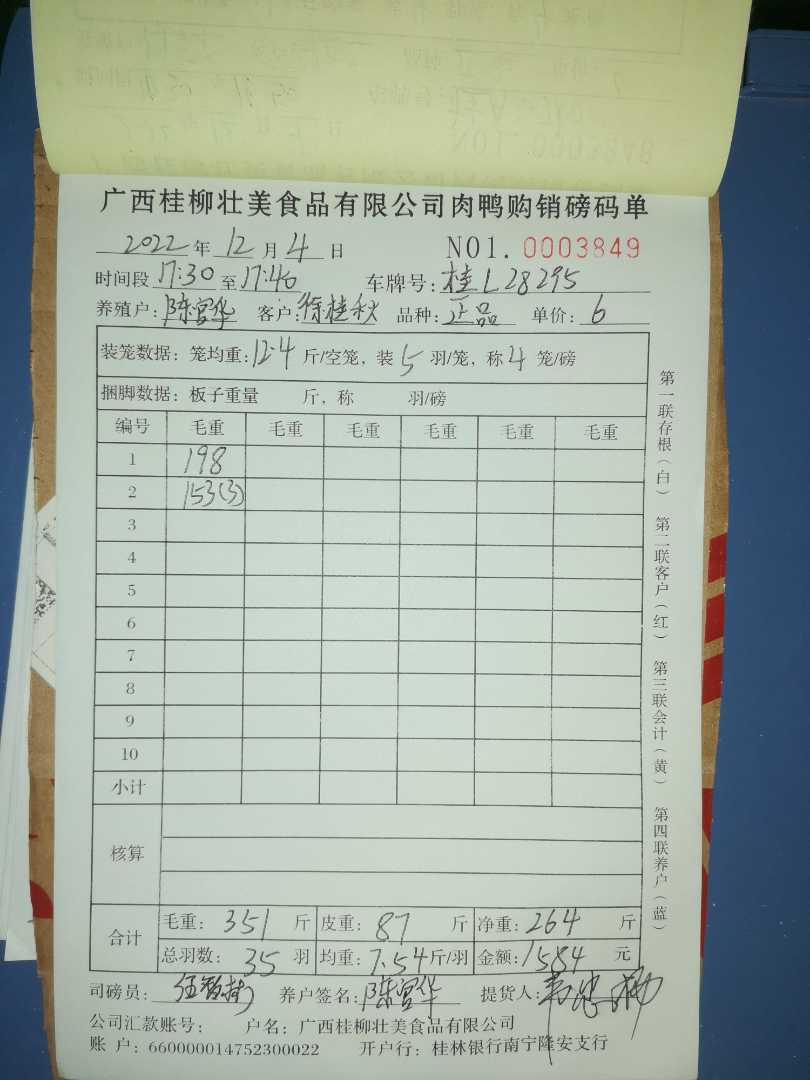 广西桂柳壮美食品有限公司肉鸭购销磅码单
2022年12月4日 NO1.0003849
时间段17:30至17:40 车牌号:桂L28295
养殖户:陈宫华 客户:徐桂秋 品种:正品 单价:6
装笼数据:笼均重:12.4斤/空笼,装5羽/笼,称4笼/磅
捆脚数据:板子重量 斤,称 羽/磅
编号 毛重 毛重 毛重 毛重 毛重 毛重
1 198
2 153(3)
3
4
5
6
7
8
9
10
小计
核算
合计 毛重:351斤 皮重:87斤 净重:264斤
总羽数:35羽 均重:7.54斤/羽 金额:1584元
司磅员: 养户签名:陈宫华 提货人:
公司汇款账号: 户名:广西桂柳壮美食品有限公司
账 户:660000014752300022 开户行:桂林银行南宁隆安支行
第一联存根(白) 第二联客户(红) 第三联会计(黄) 第四联养户(蓝)